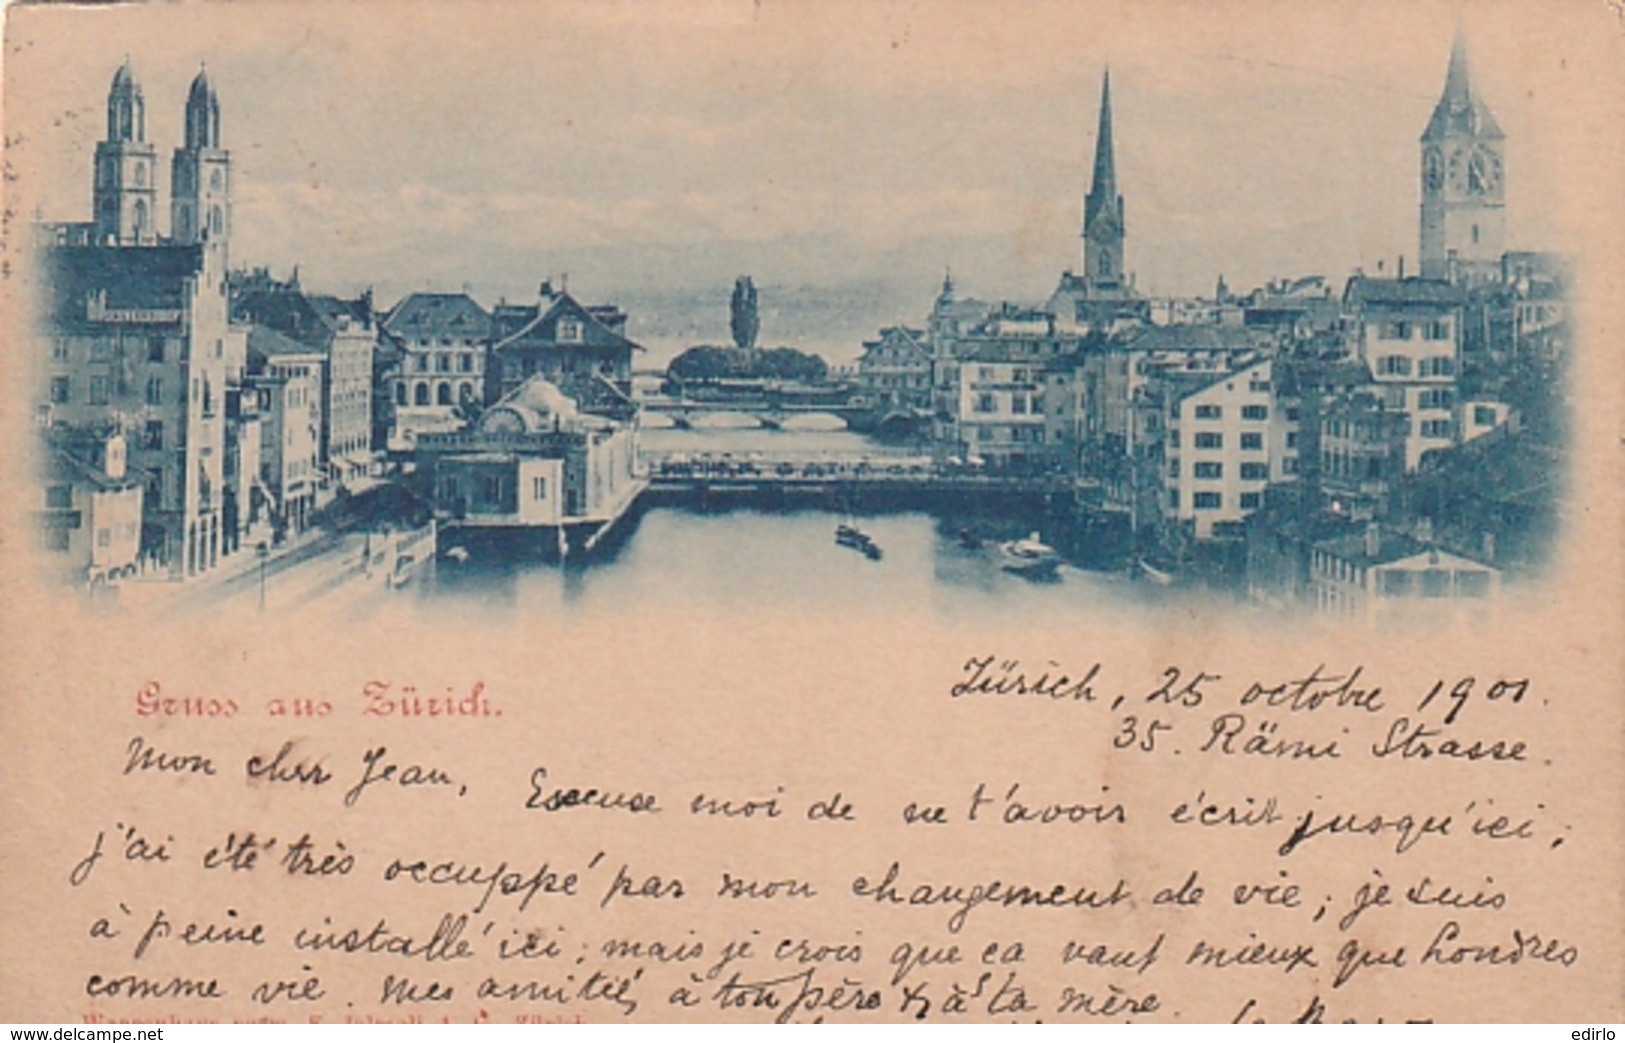 Gruss aus Zürich.
Zürich, 25 octobre 1901.
35. Rämi Strasse.
Mon cher Jean, Excuse moi de ne t'avoir écrit jusqu'ici;
j'ai été très occuppé par mon changement de vie; je suis
à peine installé ici; mais je crois que ca vaut mieux que Londres
comme vie. Mes amitiés à ton père & à ta mère.
Zürich
www.delcampe.net
edirlo